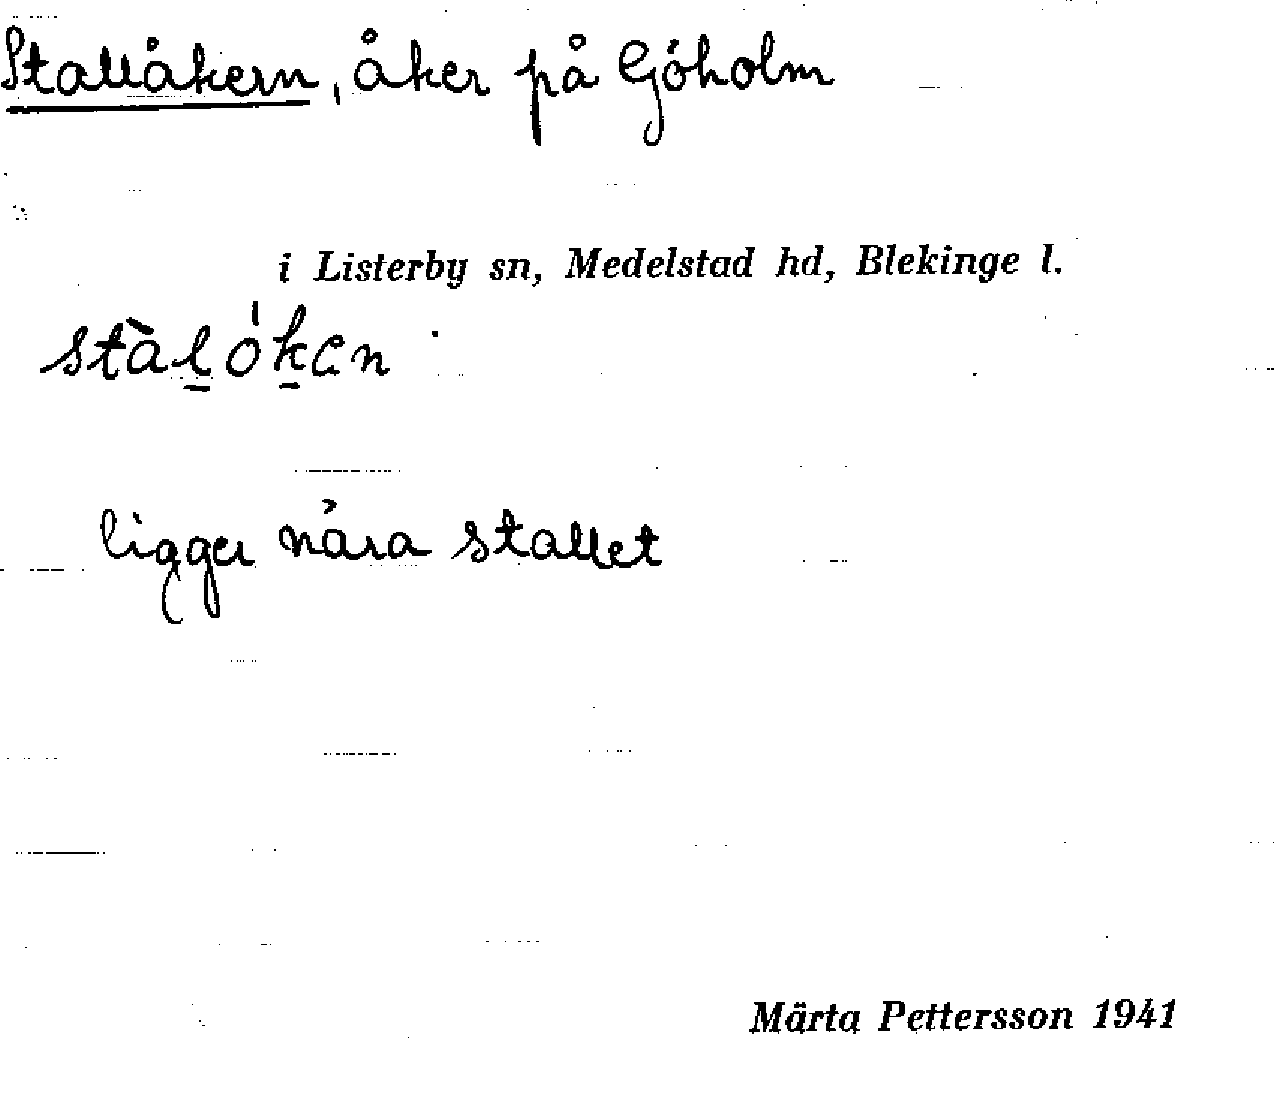 Stallåkern, åker på Göholm
i Listerby sn, Medelstad hd, Blekinge l.
stàl̲ók̲ən
ligger nära stallet
Märta Pettersson 1941